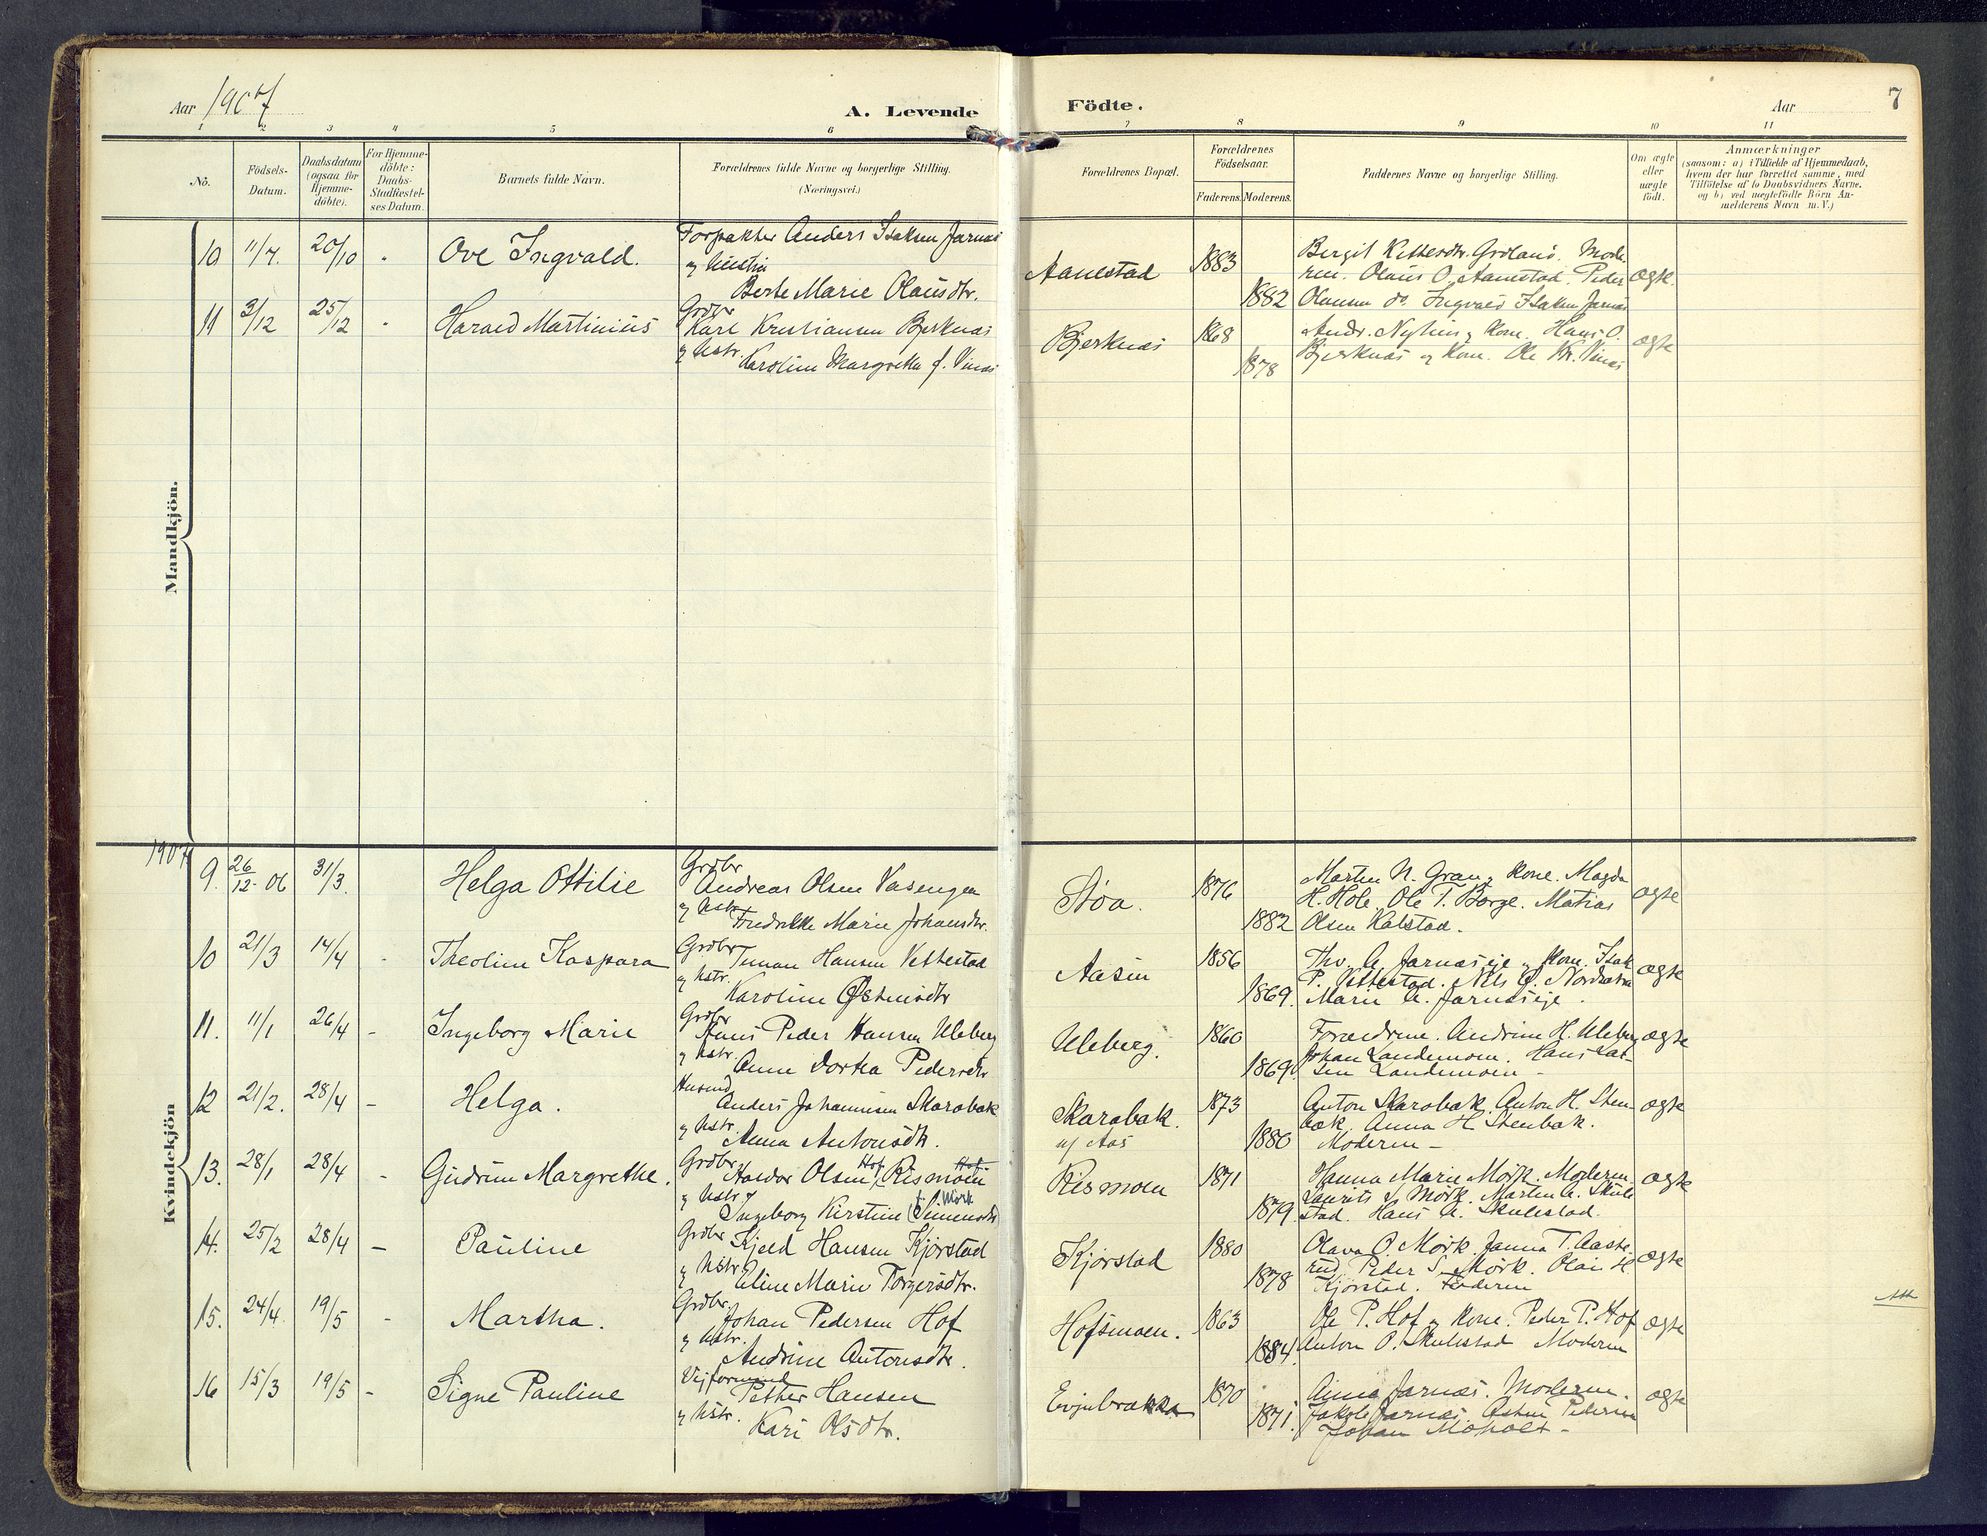 Aar 1907
A. Levende
Födte.
Aar
7
1 2 3 4 5 6 7 8 9 10 11
No.
Födsels-
Datum.
Daabsdatum
(ogsaa for
Hjemme-
döbte).
For Hjemme-
döbte:
Daabs-
Stadfæstel-
ses Datum.
Barnets fulde Navn.
Forældrenes fulde Navne og borgerlige Stilling.
(Næringsvei.)
Forældrenes Bopæl.
Forældrenes
Födselsaar.
Faderens. Moderens.
Faddernes Navne og borgerlige Stilling.
Om ægte
eller
uægte
födt.
Anmærkninger
(saasom: a) i Tilfælde af Hjemmedaab,
hvem der har forrettet samme, med
Tilföielse af to Daabsvidners Navne.
og b) ved uægtefödte Börn An-
melderens Navn m. V.)
Mandkjön.
10 11/7. 20/10 - Ove Ingvald.
Forpakter Anders Isaksen Jarnæs
og hustru
Berte Marie Olausdtr.
Aanestad 1883
1882
Bergit Kittersdtr. Mode-
ren. Olaus O. Aanestad. Peder
Olausen do. Ingvald Isaksen Jarnæs
ægte.
11 3/12 25/12 - Harald Martinius
Grdbr
Karl Kristiansen Bjerknæs
og hstr.
Karoline Margrethe f. Vinæs
Bjerknæs 1868
1878
Andr. Nyhus og Kone. Hans O.
Bjerknæs og Kone. Ole Kr. Vinæs
ægte
1907
Kvindekjön
9. 26/12-06 31/3. Helga Ottilie
Grdbr
Andreas Olsen Vasengen
og hstr.
Fredrikke Marie Johansdtr.
Støa. 1876
1882
Morten N. Gran og Kone. Magda
H. Hole. Ole T. Borge. Matias
Olsen Kalstad.
ægte
10 21/3 14/4 - Theoline Kaspara
Grdbr
Hansen Vettestad
og hstr.
Karoline Østensdtr
Aasen 1856
1869.
Thv. A. Jarnæseje og Kone. Isak
P. Vettestad. Nils O.
Marie A. Jarnæseje.
ægte
11. 11/1 26/4 - Ingeborg Marie
Grdbr
Hans Peder Hansen Uleberg
og hstr.
Anne Dortea Pedersdtr
Uleberg. 1860
1869.
Forældrene. Andrine H. Uleberg
Johan Landemoen. Hans Lar-
sen Landemoen -
ægte
12 21/2. 28/4 - Helga.
Husmd
Anders Johannesen Skarabak
og hstr.
Anna Antonsdtr.
Skarabak.
u/ Aas 1873
1880
Anton Skarobak. Anton H. Sten-
bæk. Anna H. Stenbæk.
Moderen -
ægte
13. 28/1 28/4 - Gudrun Margrethe.
Grdbr
Haldor Olsen Hof, Rismoen
og hstr.
Ingeborg Kirstine Simensdtr
f. Mørk
Rismoen 1871
1879
Hanna Marie Mørk. Moderen.
Laurits S. Mørk. Marten A. Skule-
stad. Hans A. Skulestad.
ægte
14. 25/2 28/4 - Pauline
Grdbr
Kjeld Hansen Kjørstad
og hstr
Eline Marie Torgersdtr.
Kjørstad 1880
1878
Olava O. Mørk. Janna T. Aaste-
rud. Peder S. Mørk. Olai H.
Kjørstad. Faderen
ægte
15. 24/4. 19/5 - Martha.
Grdbr.
Johan Pedersen Hof
og hstr.
Andrine Antonsdtr.
Hofsmoen. 1863
1884.
Ole P. Hof og Kone. Peder P. Hof
Anton O. Skulestad Moderen
ægte
16 15/3 19/5 - Signe Pauline
Vejformand
Petter Hansen
og hstr.
Kari Olsdtr.
Evjubrakka 1870
1871.
Anna Jarnæs. Moderen.
Jakob Jarnæs. Pedersen
Johan Moholt -
ægte